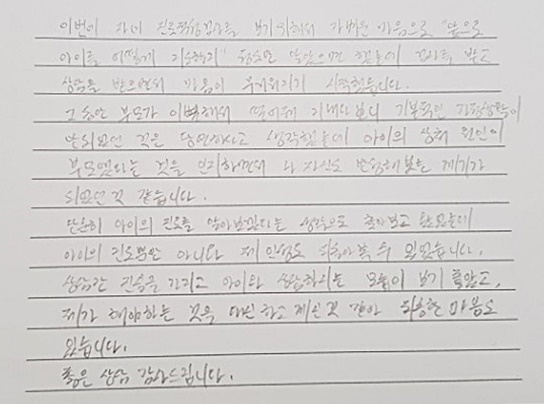 이번에 자녀 진로적성검사를 받기위해서 가벼운 마음으로 "앞으로
아이를 어떻게 지도하지" 정도만 알았으면 했는데 검사를 받고
상담을 받으면서 마음이 무거워지기 시작했습니다.
그동안 부모가 이혼해서 떨어져 지내다보니 기본적인 가정생활이
안되었던 것을 당연하다고 생각했는데 아이의 상처 원인이
부모였다는 것을 인지하면서 나 자신도 반성해보는 계기가
되었던것 같습니다.
단순히 아이의 진로를 알아보겠다는 생각으로 찾아보고 왔었는데
아이의 진로뿐만 아니라 제 인생도 되돌아볼 수 있었습니다.
상담간 진심을 가지고 아이와 상담하시는 모습이 보기 좋았고,
제가 해야하는 것을 대신 하고 계신것 같아 죄송한 마음도
있습니다.
좋은 상담 감사드립니다.